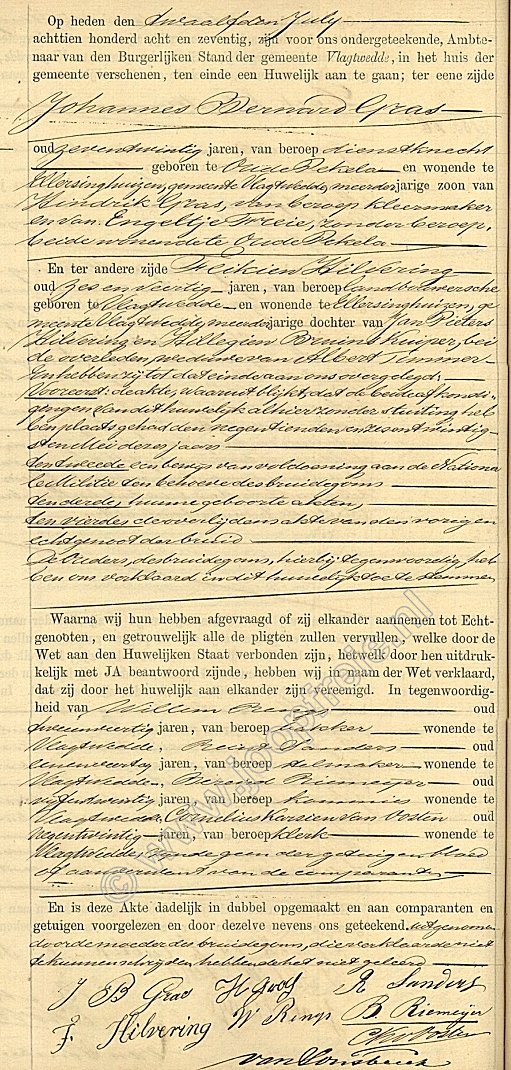 Op heden den twaalfden July
achttien honderd acht en zeventig, zijn voor ons ondergeteekende, Ambte-
naar van den Burgerlijken Stand der gemeente Vlagtwedde, in het huis der
gemeente verschenen, ten einde een Huwelijk aan te gaan; ter eene zijde
Johannes Bernard Gras
oud zevenentwintig jaren, van beroep dienstknecht
geboren te Oude Pekela en wonende te
Ellersinghuizen, gemeente Vlagtwedde, meerderjarige zoon van
Hindrik Gras, van beroep kleermaker
en van Engeltje Freie, zonder beroep,
beide wonende te Oude Pekela
En ter andere zijde Feikien Hilvering
oud zes en veertig jaren, van beroep landbouwersche
geboren te Vlagtwedde en wonende te Ellersinghuizen, ge
meente Vlagtwedde, meerderjarige dochter van Jan Pieters
Hilvering en Hillegien Bruins Kuiper, bei
de overleden, weduwe van Albert Timmer
En hebben zij tot dat einde aan ons overgelegd:
Vooreerst: de akte, waaruit blijkt, dat de beide afkondi-
gingen van dit huwelijk alhier zonder stuiting heb
ben plaats gehad den negentienden en zesentwintig-
sten Mei dezes jaars
ten tweede een bewijs van voldoening aan de Nationa
le Militie ten behoeve des bruidegoms
ten derde, hunne geboorte akten,
ten vierde, de overlijdensakte van den vorigen
echtgenoot der bruid
De Ouders, des bruidegoms, hierbij tegenwoordig, heb
ben ons verklaard in dit huwelijk toe te stemmen
Waarna wij hun hebben afgevraagd of zij elkander aannemen tot Echt-
genooten, en getrouwelijk alle de pligten zullen vervullen, welke door de
Wet aan den Huwelijken Staat verbonden zijn, hetwelk door hen uitdruk-
kelijk met JA beantwoord zijnde, hebben wij in naam der Wet verklaard,
dat zij door het huwelijk aan elkander zijn vereenigd. In tegenwoordig-
heid van Willem Rings oud
tweeenveertig jaren, van beroep bakker wonende te
Vlagtwedde, Reint Sanders oud
eenenveertig jaren, van beroep zadelmaker wonende te
Vlagtwedde, Berend Riemeijer oud
vijfentwintig jaren, van beroep kommies wonende te
Vlagtwedde, Cornelius Karsien van Oosten oud
negentwintig jaren, van beroep klerk wonende te
Vlagtwedde, zijnde geen der getuigen bloed
of aanverwant van de comparanten
En is deze Akte dadelijk in dubbel opgemaakt en aan comparanten en
getuigen voorgelezen en door dezelve nevens ons geteekend. uitgenomen
door de moeder des bruidegoms, die verklaarde niet
te kunnen schrijven, hebbende het niet geleerd
J B Gras H Gras R Sanders
F. Hilvering W Rings B. Riemeijer
CKvOosten
© www.joopfreie.nl